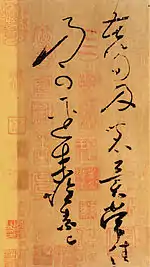 苦筍及茗異常佳
乃可逕來懷素上